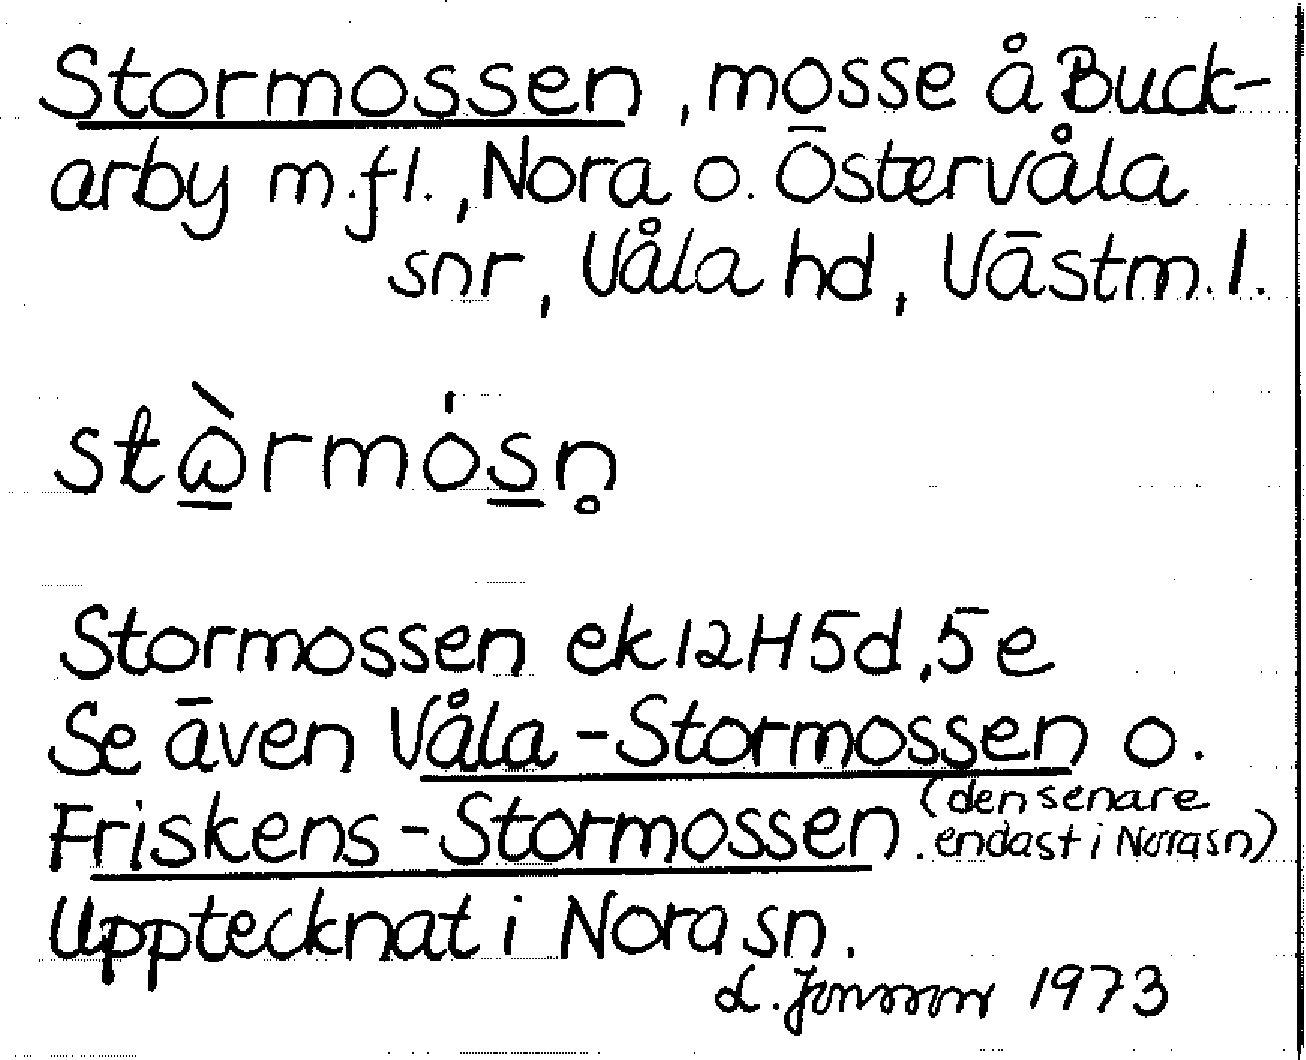 Stormossen, mosse å Buck-
arby m.fl., Nora o. Östervåla
snr, Våla hd, Västm. l.
stɷ̀rmósn̥
Stormossen ek 12H 5d, 5e
Se även Våla-Stormossen o.
Friskens-Stormossen. (den senare
endast i Nora sn)
Upptecknat i Nora sn.
L. Jonsson 1973